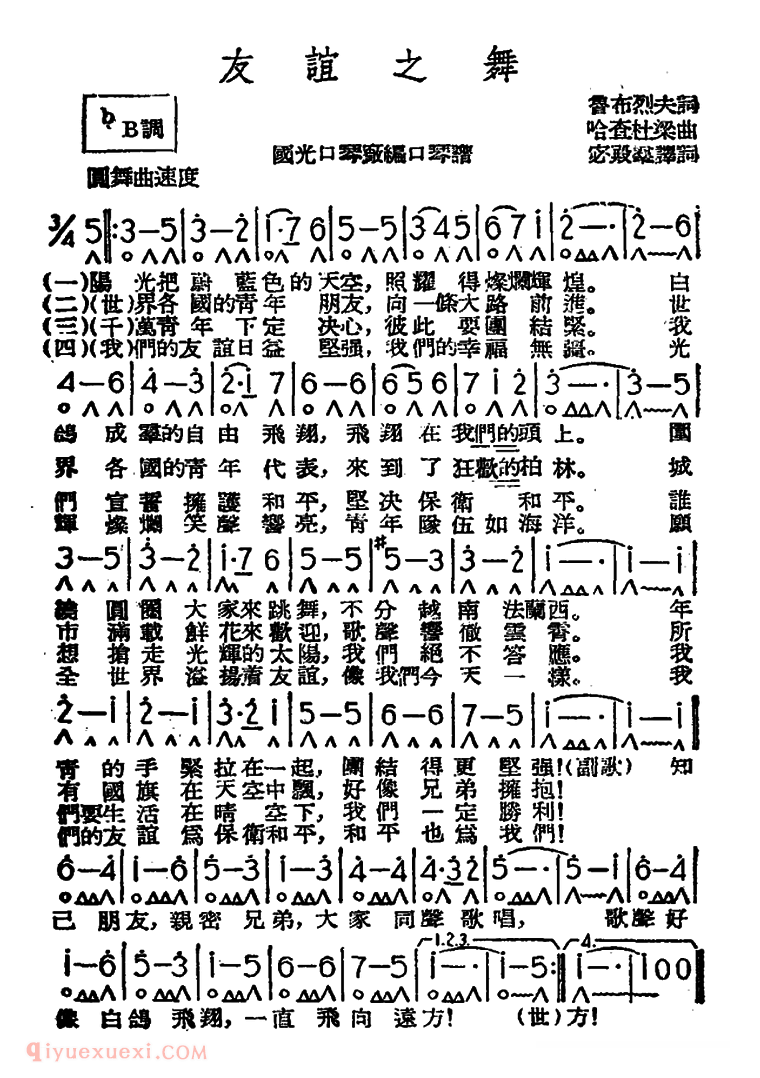 友誼之舞
♭B調
圓舞曲速度
國光口琴廠編口琴譜
魯布烈夫詞
哈查杜梁曲
宓殿羣譯詞
3/4 5‖:3—5|3—2|1·76|6—5|345|671|2—·|2—6|
(一)陽光把蔚藍色的天空,照耀得燦爛輝煌。白
(二)(世)界各國的青年朋友,向一條大路前進。世
(三)(千)萬青年下定決心,彼此要團結緊。我
(四)(我)們的友誼日益堅强,我們的幸福無疆。光
4—6|4—3|2·17|6—6|656|712|3—·|3—5|
鴿成羣的自由飛翔,飛翔在我們的頭上。圍
界各國的青年代表,來到了狂歡的柏林。城
們宣誓擁護和平,堅決保衛和平。誰
輝燦爛笑聲響亮,青年隊伍如海洋。願
3—5|3—2|1·76|5—5|#5—3|3—2|1—·|1—1|
繞圓圈大家來跳舞,不分越南法蘭西。年
市滿載鮮花來歡迎,歌聲響徹雲霄。所
想搶走光輝的太陽,我們絕不答應。我
全世界溢揚着友誼,像我們今天一樣。我
2—1|2—1|3·21|5—5|6—6|7—5|1—·|1—1|
青的手緊拉在一起,團結得更堅强!(副歌)知
有國旗在天空中飄,好像兄弟擁抱!
們要生活在晴空下,我們一定勝利!
們的友誼爲保衛和平,和平也爲我們!
6—4|1—6|5—3|1—3|4—4|4·32|5—·|5—1|6—4|
己朋友,親密兄弟,大家同聲歌唱,歌聲好
1.2.3.
4.
1—6|5—3|1—5|6—6|7—5|1—·|1—5:‖1—·|100‖
像白鴿飛翔,一直飛向遠方!(世)方!
qiyuexuexi.com